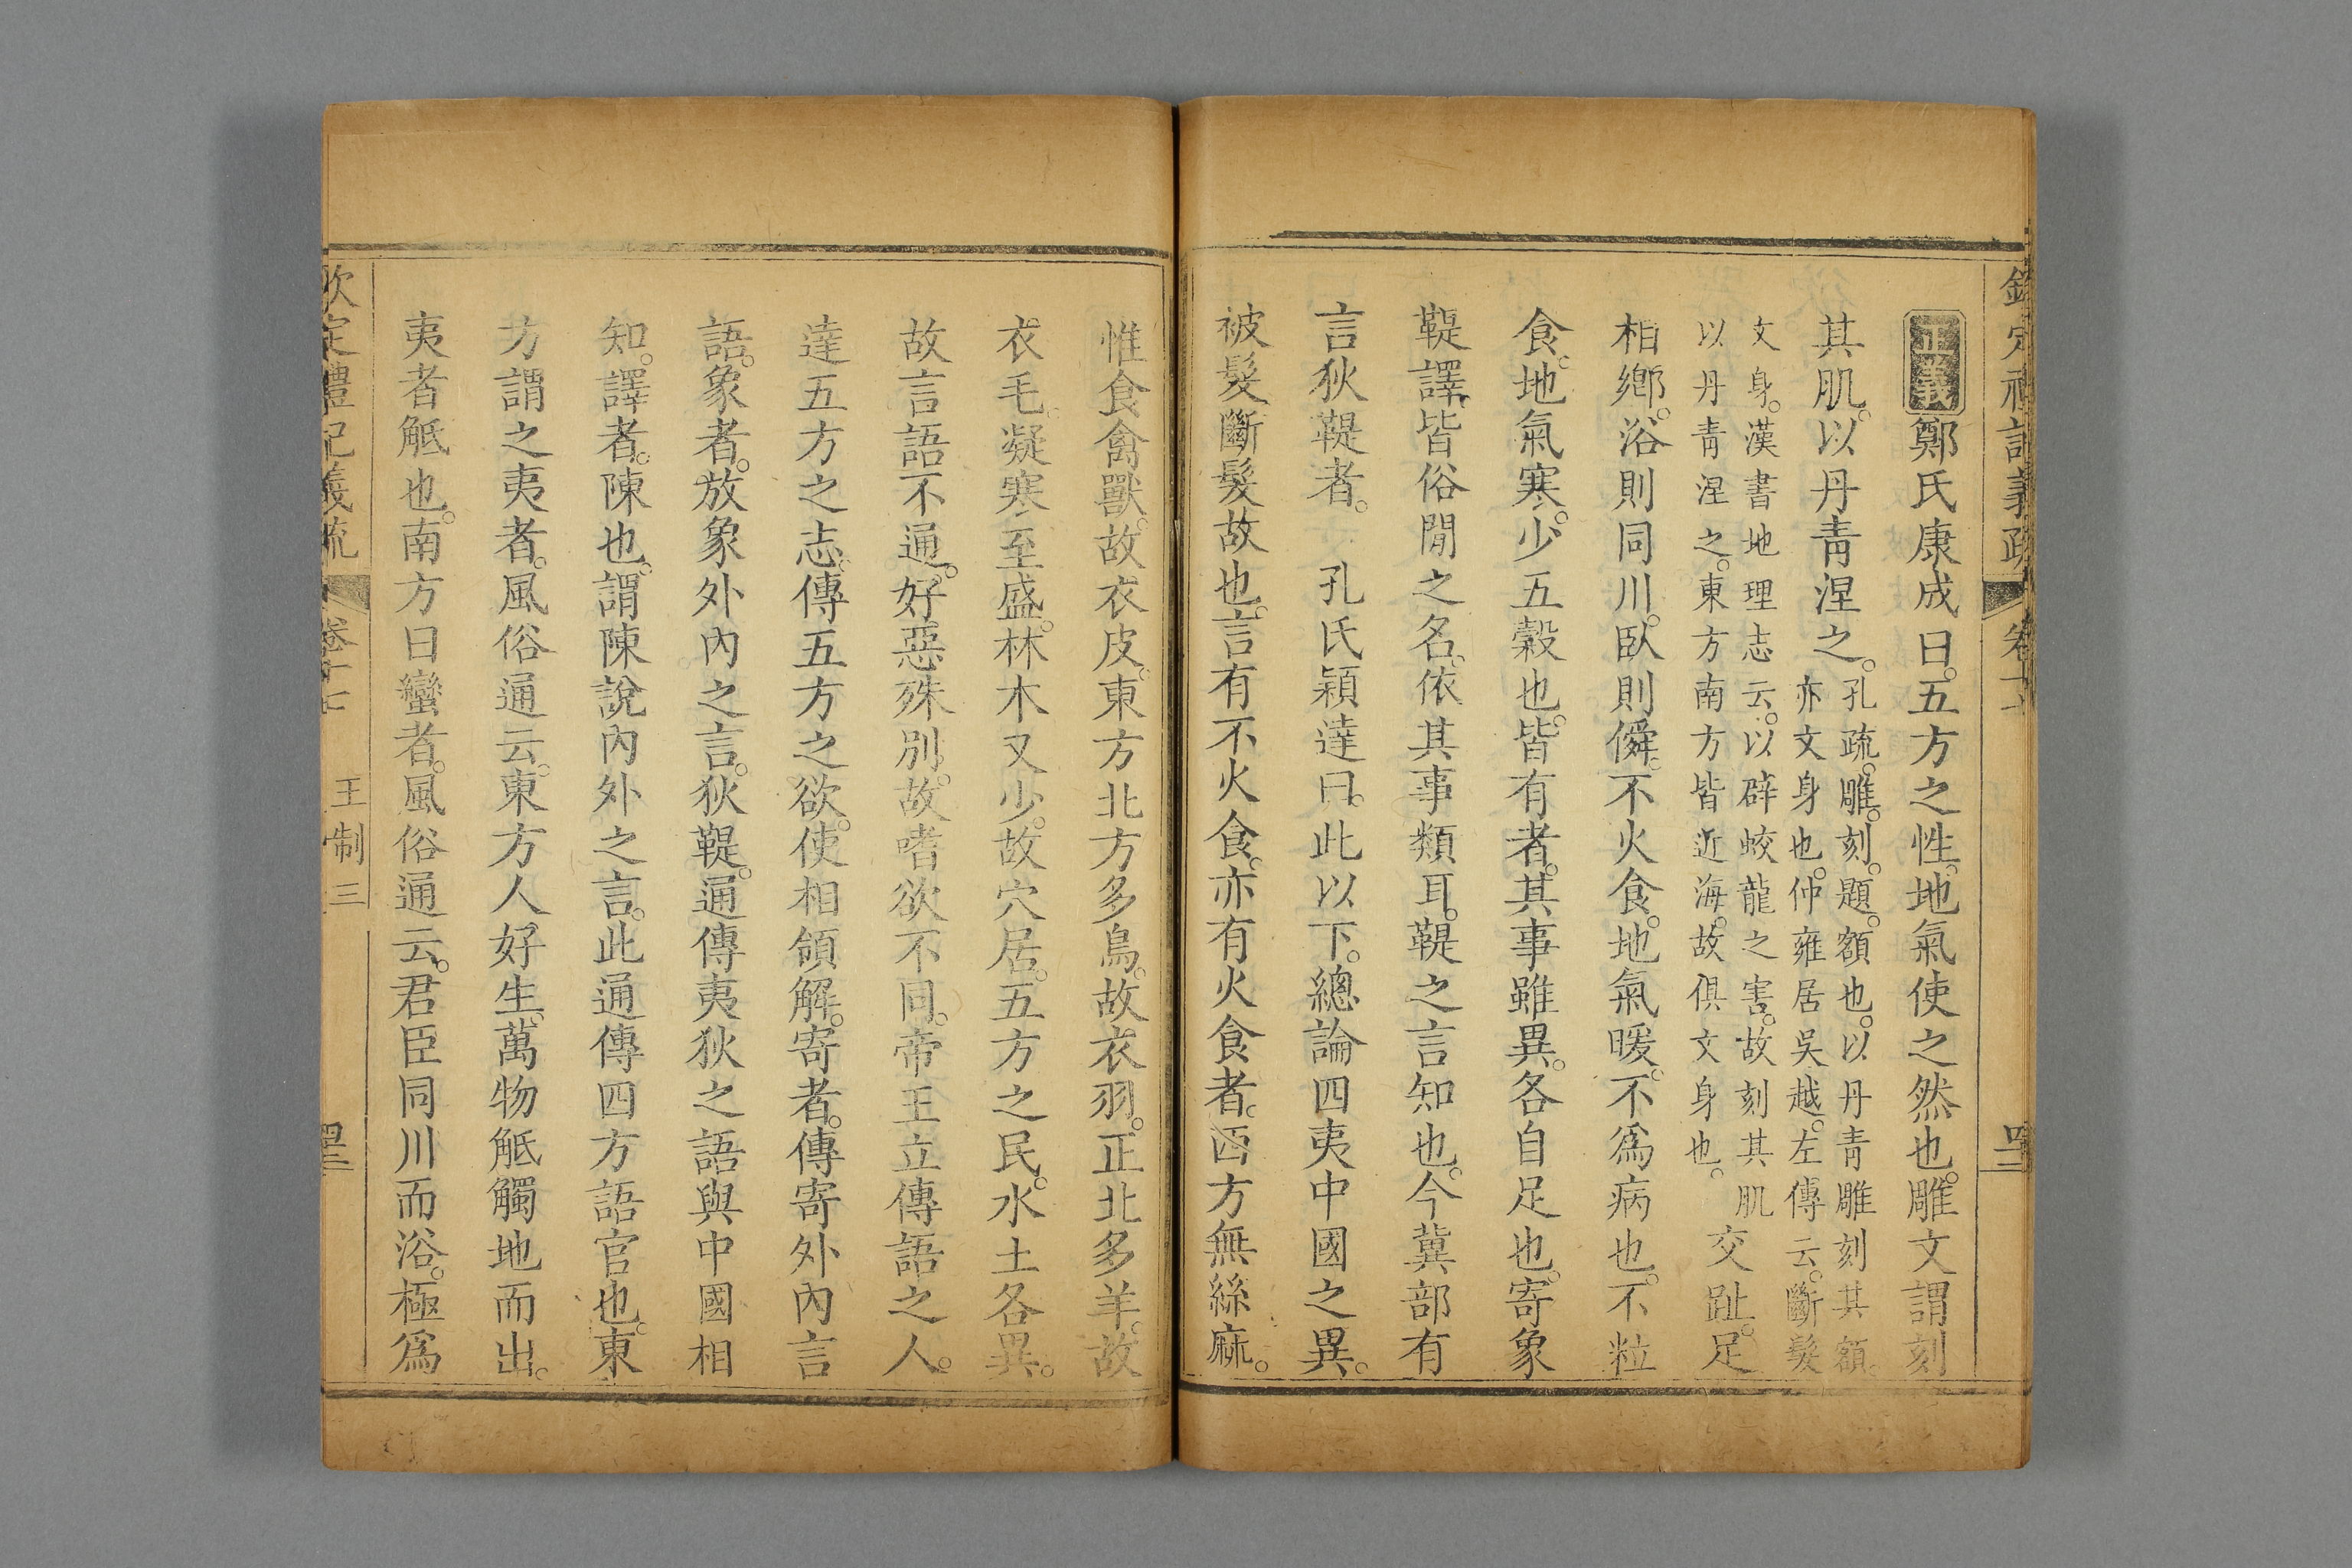 欽定禮記義疏 卷十七 四三
正義鄭氏康成曰。五方之性。地氣使之然也。雕文謂刻
其肌。以丹靑涅之。孔疏。雕。刻。題。額也。以丹靑雕刻其額。
亦文身也。仲雍居吳越。左傳云。斷髮
文身。漢書地理志云。以辟蛟龍之害。故刻其肌
以丹靑涅之。東方南方皆近海。故俱文身也。交趾。足
相鄉。浴則同川。臥則僢。不火食。地氣暖。不爲病也。不粒
食。地氣寒。少五穀也。皆有者。其事雖異。各自足也。寄象
鞮譯。皆俗閒之名。依其事類耳。鞮之言知也。今冀部有
言狄鞮者。 孔氏穎達曰。此以下。總論四夷中國之異。
被髮斷髮故也。言有不火食。亦有火食者。西方無絲麻。
惟食禽獸。故衣皮。東方北方多鳥。故衣羽。正北多羊。故
衣毛。凝寒至盛。林木又少。故穴居。五方之民。水土各異。
故言語不通。好惡殊別。故嗜欲不同。帝王立傳語之人。
達五方之志。傳五方之欲。使相領解。寄者。傳寄外內言
語。象者。放象外內之言。狄鞮。通傳夷狄之語與中國相
知。譯者。陳也。謂陳說內外之言。此通傳四方語官也。東
方謂之夷者。風俗通云。東方人好生。萬物觝觸地而出。
夷者觝也。南方曰蠻者。風俗通云。君臣同川而浴。極爲
欽定禮記義疏 卷十七 王制三 四三